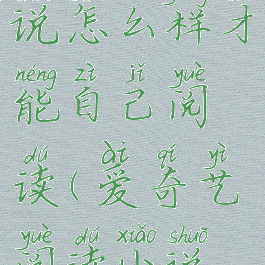 说怎么样才
néng zì jǐ yuè
能自己阅
dú ài qí yì
读(爱奇艺
yuè dú xiǎo shuō
阅读小说